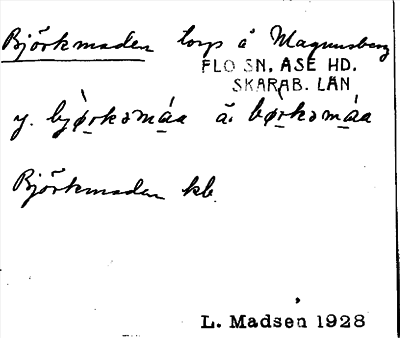 Björkmaden torp å Magnusberg
FLO SN. ÅSE HD.
SKARAB. LÄN
y. bjòrkəmáa ä. bòrkəmáa
Björkmaden kb.
L. Madsen 1928